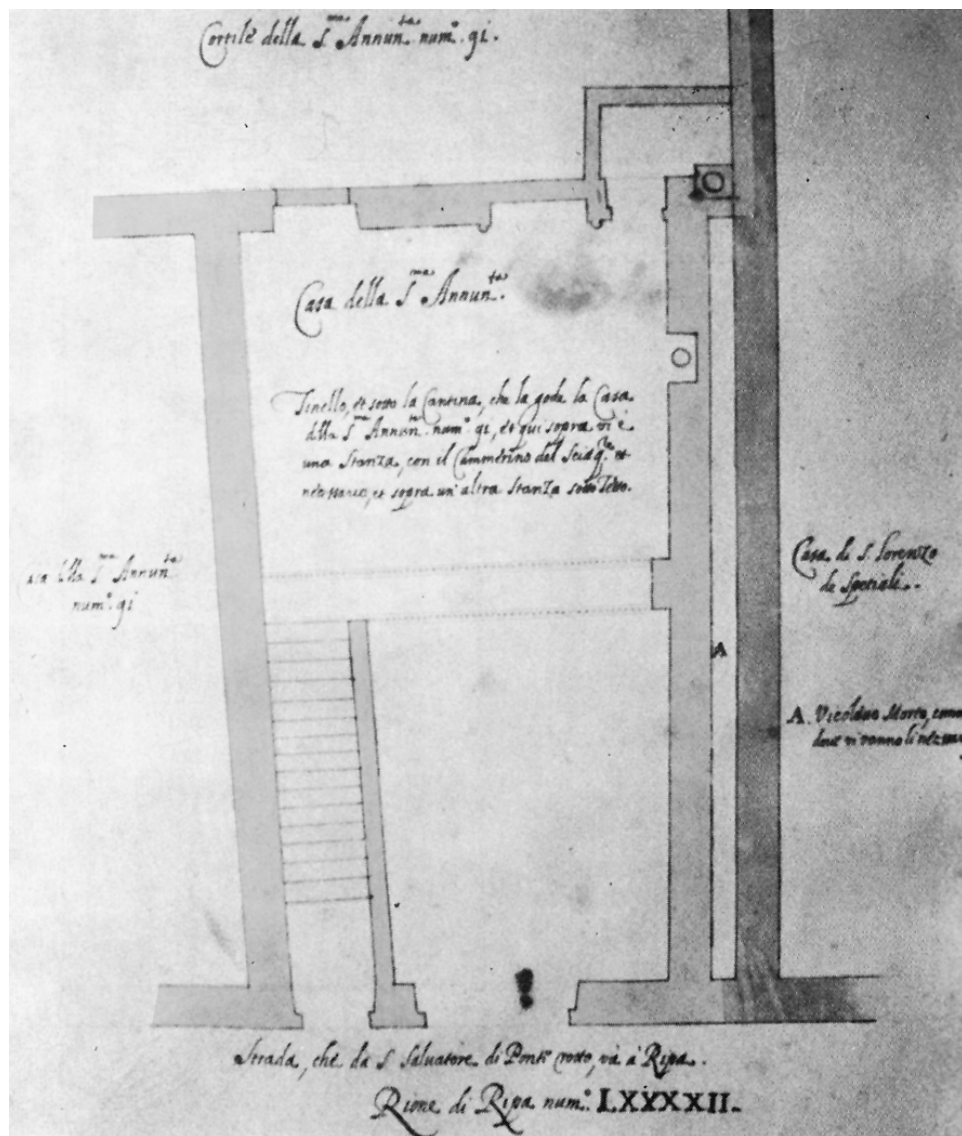 Cortile della S.ma Annun.ta num.o 91.
Casa della S.ma Annun.ta
Tinello, et sotto la Cantina, che la gode la Casa
della S.ma Annun.ta num.o 91, et qui sopra vi è
una Stanza, con il Cammerino del et
necessario, et sopra un'altra Stanza sotto Tetto.
Casa della S.ma Annun.ta
num.o 91
Casa di S. Lorenzo
de Spetiali.
A
A. Vicolo Morto,
dove vi vanno li
Strada, che da S. Salvatore di Ponte rotto, và à Ripa.
Rione di Ripa num.o LXXXXII.